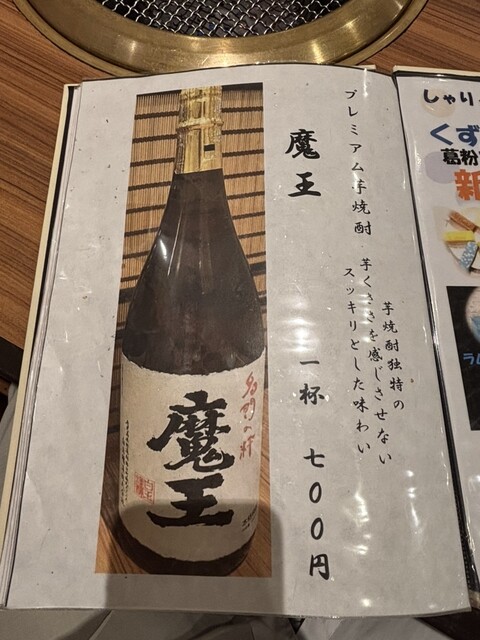 プレミアム芋焼酎
魔王
芋焼酎独特の
芋くささを感じさせない
スッキリとした味わい
一杯 七〇〇円
名門の粋
魔王
しゃり
くず
葛粉
新